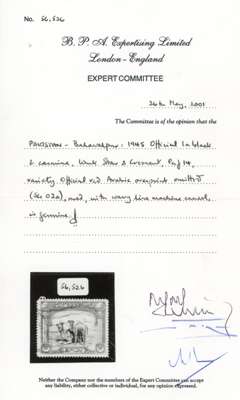 No. 56,526
B. P. A. Expertising Limited
London - England
EXPERT COMMITTEE
24th May, 2001
The Committee is of the opinion that the
PAKISTAN - Bahawalpur: 1945 Official 1a black
& carmine, Wmk Star & Crescent, Perf 14,
variety Official red Arabic overprint omitted
(SG O2a), used, with wavy line machine cancel
is genuine.
56,526
Neither the Company nor the members of the Expert Committee can accept
any liability, either collective or individual, for any opinion expressed.